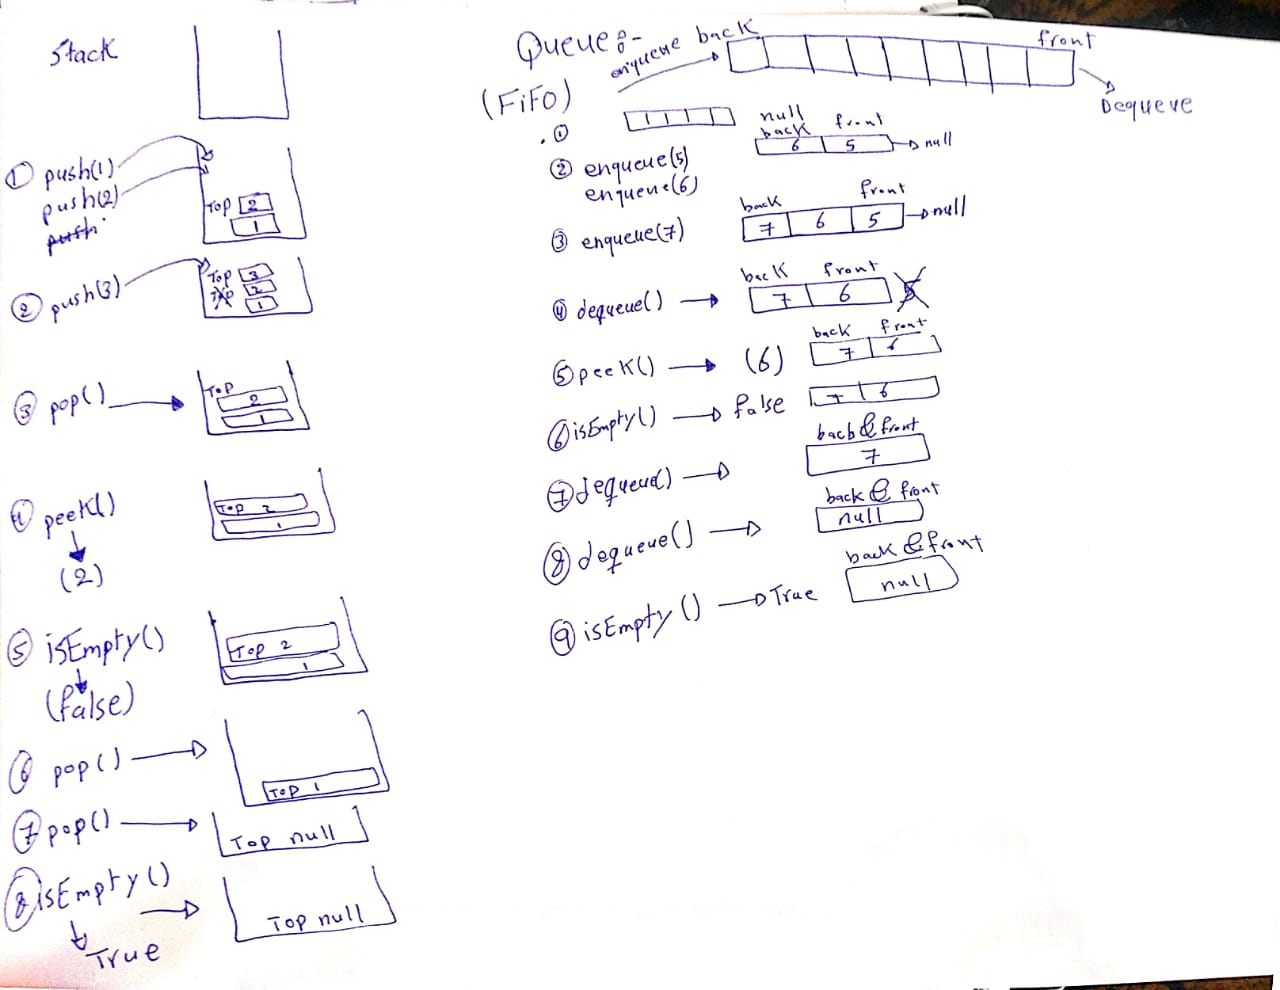 Stack
① push(1)
push(2)
push
Top 2
1
② push(3)
Top 3
Top 2
1
③ pop()
Top
2
1
④ peeK()
(2)
Top 2
1
⑤ isEmpty()
(false)
Top 2
1
⑥ pop()
Top 1
⑦ pop()
Top null
⑧ isEmpty()
True
Top null
Queue:-
(FiFO)
enqueue back
front
Dequeue
①
② enqueue(5)
enqueue(6)
null
back front
6 5 null
③ enqueue(7)
back front
7 6 5 null
④ dequeue()
back front
7 6 5
⑤ peeK() (6)
back front
7 6
⑥ isEmpty() false
7 6
⑦ dequeue()
back & front
7
⑧ dequeue()
back & front
null
⑨ isEmpty() True
back & front
null